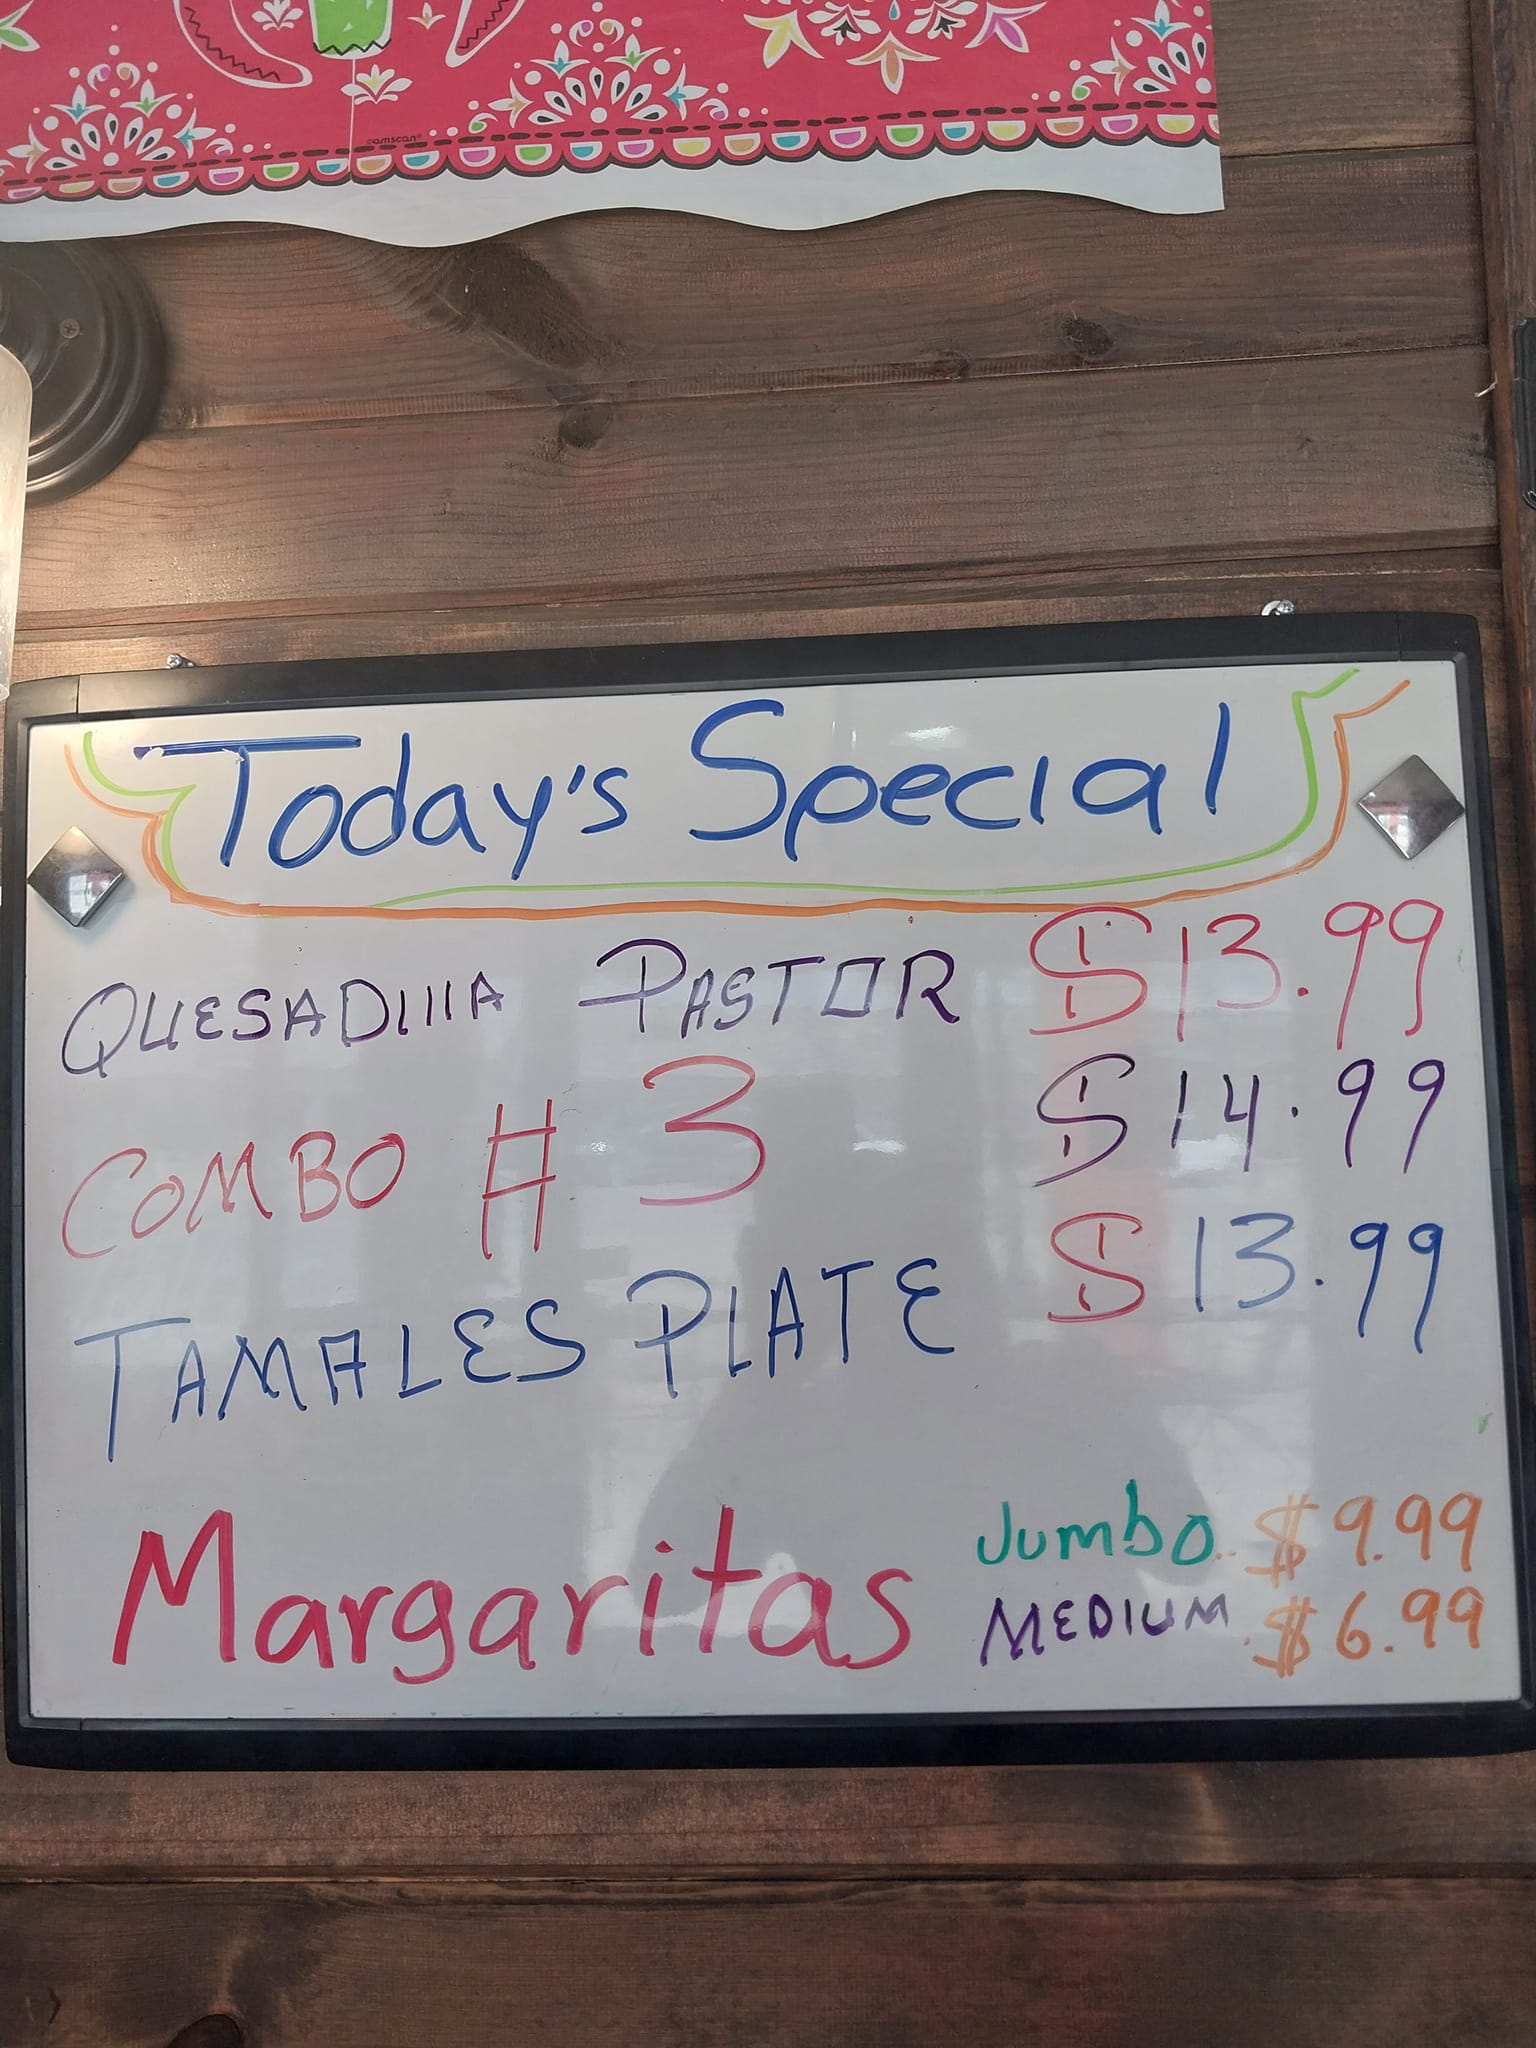 ©amscan®
Today's Special
QUESADIllA PASTOR $13.99
COMBO # 3 $14.99
TAMALES PLATE $13.99
Margaritas
Jumbo.. $9.99
MEDIUM . $6.99